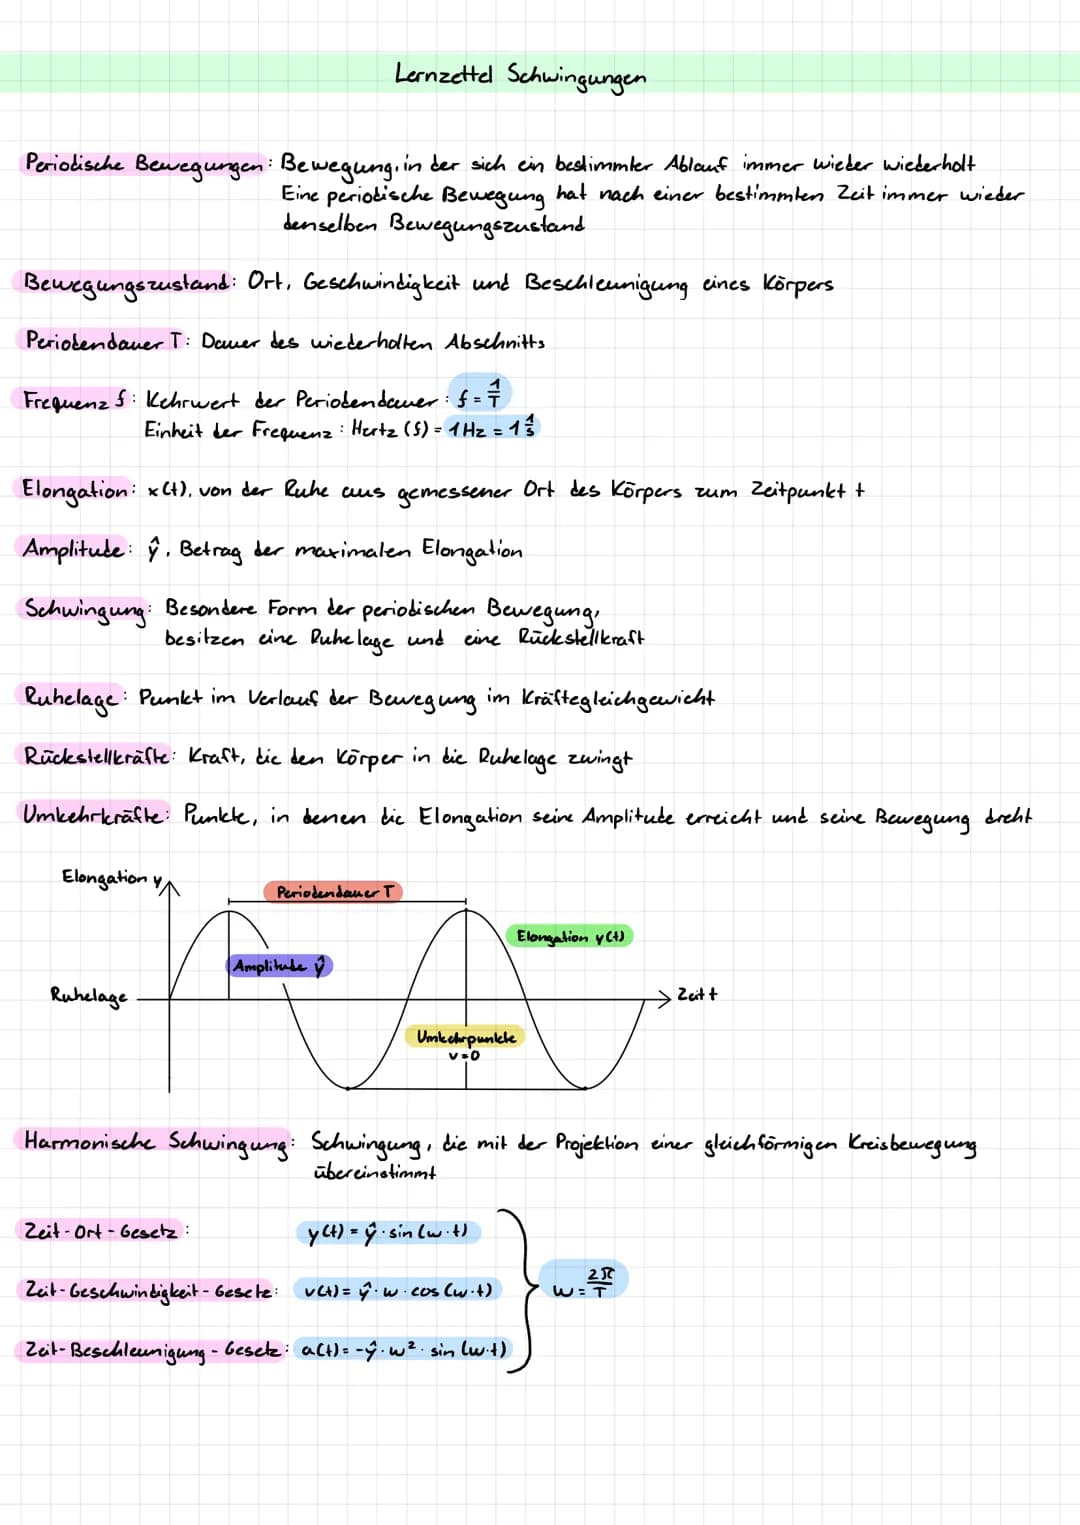 Lernzettel Schwingungen
Periodische Bewegungen: Bewegung, in der sich ein bestimmter Ablauf immer wieder wiederholt
Eine periodische Bewegung hat nach einer bestimmten Zeit immer wieder
denselben Bewegungszustand
Bewegungszustand: Ort, Geschwindigkeit und Beschleunigung eines Körpers
Periodendauer T: Dauer des wiederholten Abschnitts
Frequenz f: Kehrwert der Periodendauer: f = 1/T
Einheit der Frequenz: Hertz (f) = 1 Hz = 1 1/s
Elongation: x(t), von der Ruhe aus gemessener Ort des Körpers zum Zeitpunkt t
Amplitude: ŷ, Betrag der maximalen Elongation
Schwingung: Besondere Form der periodischen Bewegung,
besitzen eine Ruhelage und eine Rückstellkraft
Ruhelage: Punkt im Verlauf der Bewegung im Kräftegleichgewicht
Rückstellkräfte: Kraft, die den Körper in die Ruhelage zwingt
Umkehrkräfte: Punkte, in denen die Elongation seine Amplitude erreicht und seine Bewegung dreht
Elongation y
Periodendauer T
Elongation y(t)
Amplitude ŷ
Ruhelage
Zeit t
Umkehrpunkte
v=0
Harmonische Schwingung: Schwingung, die mit der Projektion einer gleichförmigen Kreisbewegung
übereinstimmt
Zeit-Ort-Gesetz: y(t) = ŷ · sin(w·t)
Zeit-Geschwindigkeit-Gesetz: v(t) = ŷ · w · cos(w·t)
w = 2π/T
Zeit-Beschleunigung-Gesetz: a(t) = -ŷ · w² · sin(w·t)